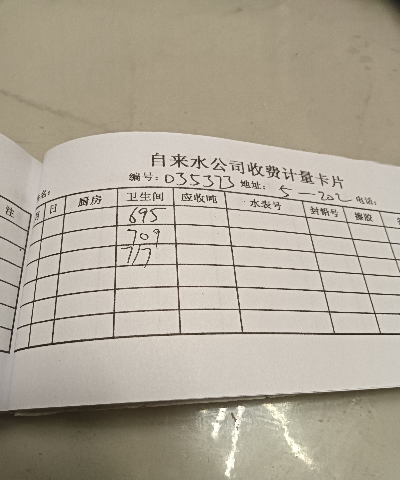 自来水公司收费计量卡片
编号: 035373 地址: 5-202 电话:
注 名:
月 日 厨房 卫生间 应收吨 水表号 封铅号 橡胶
695
709
717